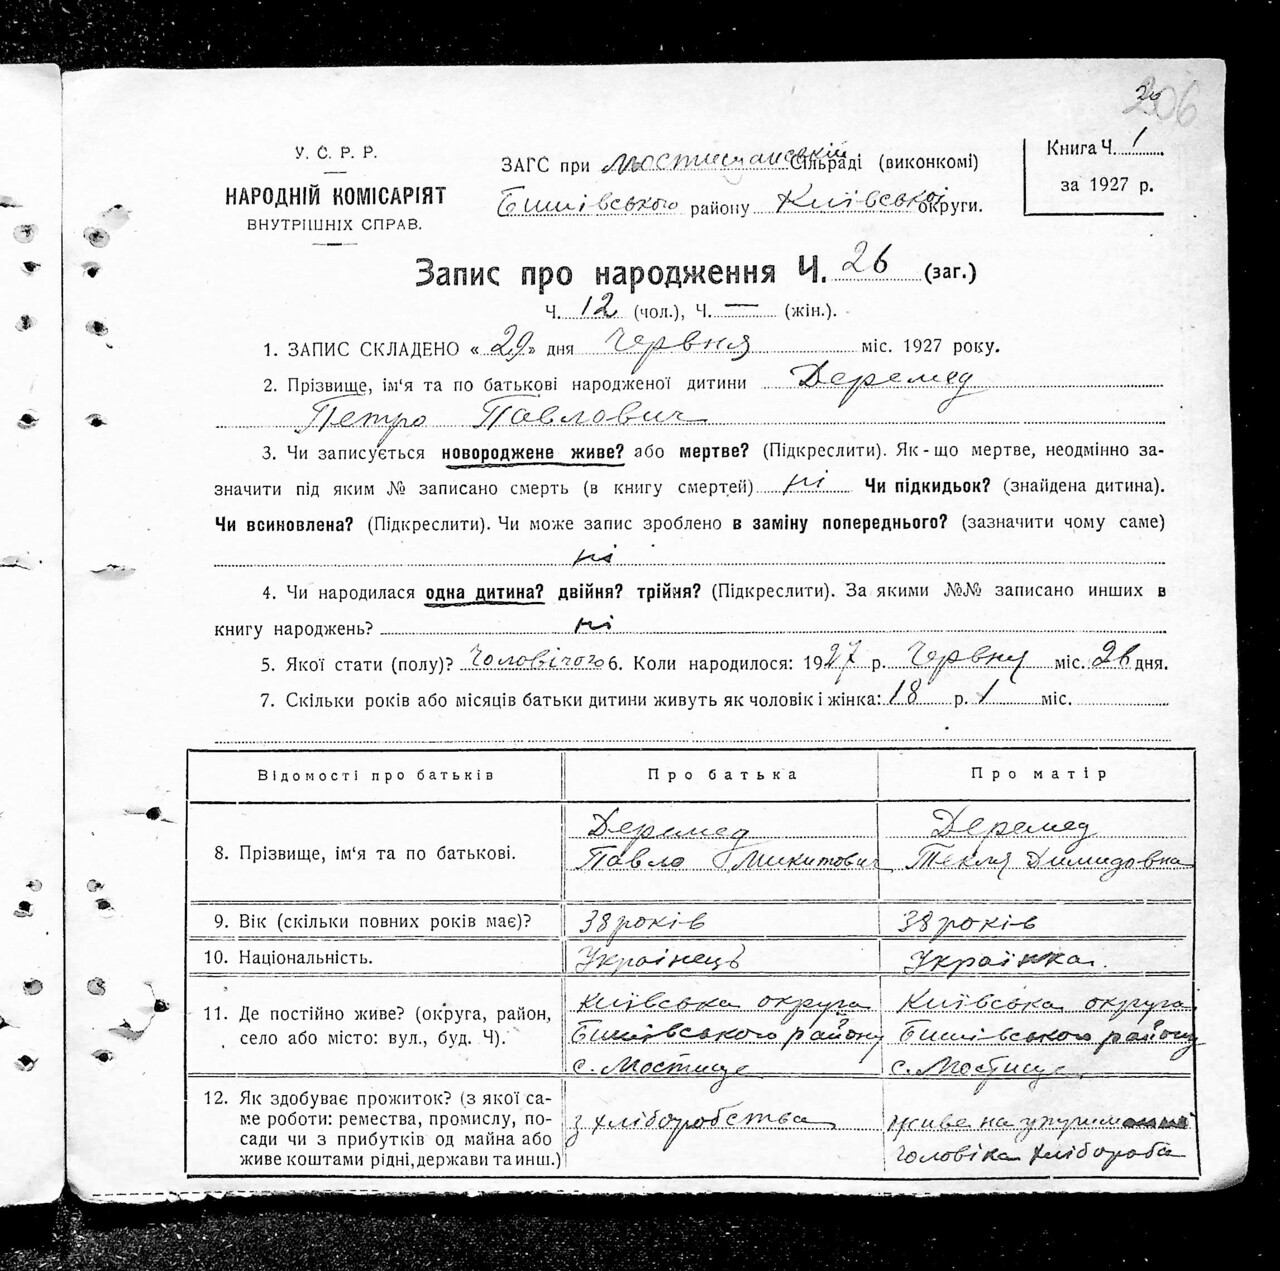 206
20
У. С. Р. Р.
НАРОДНІЙ КОМІСАРІЯТ
ВНУТРІШНІХ СПРАВ.
ЗАГС при Мостищанській Сільраді (виконкомі)
Бишівського району Київської округи.
Книга Ч. 1
за 1927 р.
Запис про народження Ч. 26 (заг.)
Ч. 12 (чол.), Ч. — (жін.).
1. ЗАПИС СКЛАДЕНО « 29 » дня Червня міс. 1927 року.
2. Прізвище, ім'я та по батькові народженої дитини Деремед
Петро Павлович
3. Чи записується новороджене живе? або мертве? (Підкреслити). Як-що мертве, неодмінно за-
значити під яким № записано смерть (в книгу смертей) ні Чи підкидьок? (знайдена дитина).
Чи всиновлена? (Підкреслити). Чи може запис зроблено в заміну попереднього? (зазначити чому саме)
ні
4. Чи народилася одна дитина? двійня? трійня? (Підкреслити). За якими №№ записано инших в
книгу народжень? ні
5. Якої стати (полу)? Чоловічого 6. Коли народилося: 1927 р. Червня міс. 26 дня.
7. Скільки років або місяців батьки дитини живуть як чоловік і жінка: 18 р. 1 міс.
Відомості про батьків Про батька Про матір
8. Прізвище, ім'я та по батькові. Деремед Павло Микитович Деремед Текля Димидовна
9. Вік (скільки повних років має)? 38 років 38 років
10. Національність. Украінець Украінка.
11. Де постійно живе? (округа, район,
село або місто: вул., буд. Ч).
Київська округа Бишівського району с. Мостище
Київська округа Бишівського району с. Мостище
12. Як здобуває прожиток? (з якої са-
ме роботи: ремества, промислу, по-
сади чи з прибутків од майна або
живе коштами рідні, держави та инш.)
з хліборобства
живе на утрим
чоловіка хлібороба